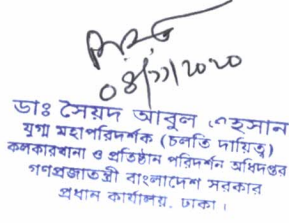 ০৪/১১/২০২০
ডাঃ সৈয়দ আবুল এহসান
যুগ্ম মহাপরিদর্শক (চলতি দায়িত্ব)
কলকারখানা ও প্রতিষ্ঠান পরিদর্শন অধিদপ্তর
গণপ্রজাতন্ত্রী বাংলাদেশ সরকার
প্রধান কার্যালয়, ঢাকা।